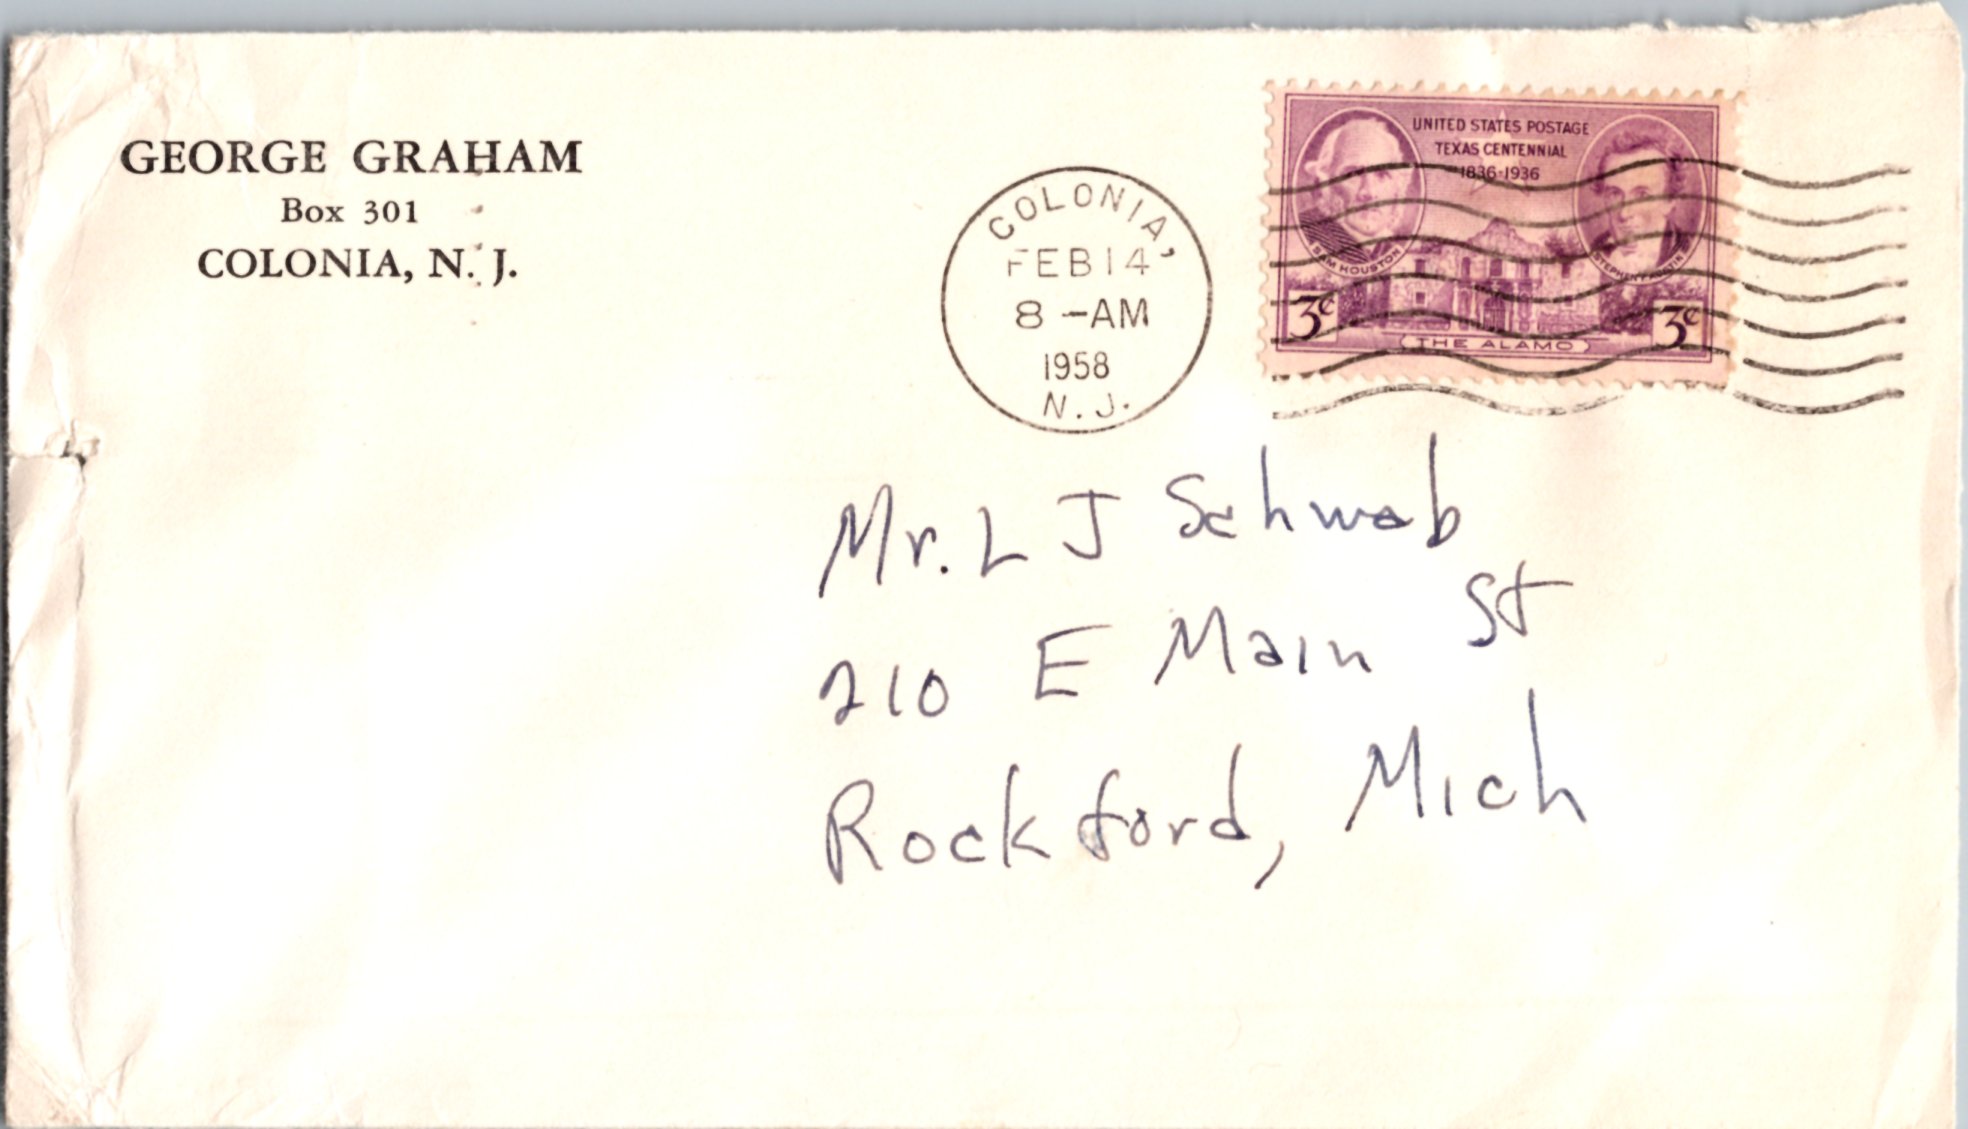 GEORGE GRAHAM
Box 301
COLONIA, N. J.
COLONIA,
FEB 14
8 -AM
1958
N. J.
UNITED STATES POSTAGE
TEXAS CENTENNIAL
1836-1936
SAM HOUSTON
STEPHEN F. AUSTIN
3¢
3¢
THE ALAMO
Mr. L J Schwab
210 E Main St
Rockford, Mich